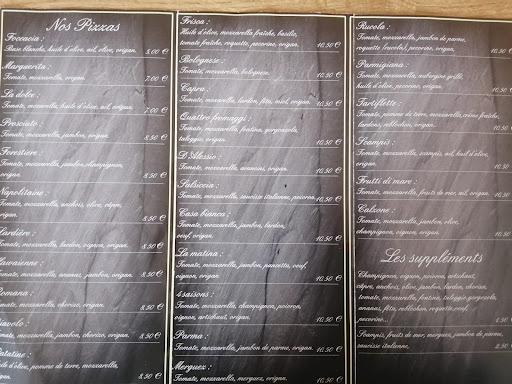 Nos Pizzas
Foccacia :
Base blanche, huile d'olive, ail, olive, origan. 5,00 €
Margarita :
Tomate, mozzarella, origan. 7,00 €
La dolce :
Tomate, mozzarella, huile d'olive, ail, origan. 7,00 €
Presciato :
Tomate, mozzarella, jambon, origan. 8,50 €
Forestière :
Tomate, mozzarella, jambon, champignon,
origan. 8,50 €
Napolitaine :
Tomate, mozzarella, anchois, olive, câpre,
origan. 8,50 €
Lardière :
Tomate, mozzarella, lardon, oignon, origan. 8,50 €
Hawaienne :
Tomate, mozzarella, ananas, jambon, origan. 8,50 €
Romana :
Tomate, mozzarella, chorizo, origan. 8,50 €
Tomate, mozzarella, jambon, chorizo, origan. 8,50 €
d'olive, pomme de terre, mozzarella,
origan. 8,50 €
Frisca :
Huile d'olive, mozzarella fraîche, basilic,
tomate fraîche, roquette, pecorino, origan. 10,50 €
Bolognese :
Tomate, mozzarella, bolognese. 10,50 €
Capra :
Tomate, mozzarella, lardon, féta, miel, origan. 10,50 €
Quattro fromaggi :
Tomate, mozzarella, fontina, gorgonzola,
taleggio, origan. 10,50 €
D'Alessio :
Tomate, mozzarella, origan. 10,50 €
Salsiccia :
Tomate, mozzarella, saucisse italienne, poivron. 10,50 €
Casa bianca :
Tomate, mozzarella, jambon, lardon,
oeuf, origan. 10,50 €
La matina :
Tomate, mozzarella, jambon, pancetta, oeuf,
oignon, origan. 10,50 €
4 saisons :
Tomate, mozzarella, champignon, poivron,
oignon, artichaut, origan. 10,50 €
Parma :
Tomate, mozzarella, jambon de parme, origan. 10,50 €
Merguez :
Tomate, mozzarella, merguez, origan. 10,50 €
Rucola :
Tomate, mozzarella, jambon de parme,
roquette (rucola), pecorino, origan. 10,50 €
Parmigiana :
Tomate, mozzarella, aubergine grillé,
huile d'olive, pecorino, origan. 10,50 €
Tartiflette :
Tomate, pomme de terre, mozzarella, crème fraîche,
lardons, reblochon, origan. 10,50 €
Scampis :
Tomate, mozzarella, scampis, ail, huile d'olive,
origan. 10,50 €
Frutti di mare :
Tomate, mozzarella, fruits de mer, ail, origan. 10,50 €
Calzone :
Tomate, mozzarella, jambon, olive,
champignon, oignon, origan. 10,50 €
Les suppléments
Champignon, oignon, poivron, artichaut,
câpre, anchois, olive, jambon, lardon, chorizo,
tomate, mozzarella, fontina, taleggio, gorgonzola,
ananas, féta, reblochon, roquette, oeuf,
pecorino...
Scampis, fruits de mer, merguez, jambon de parme,
saucisse italienne.